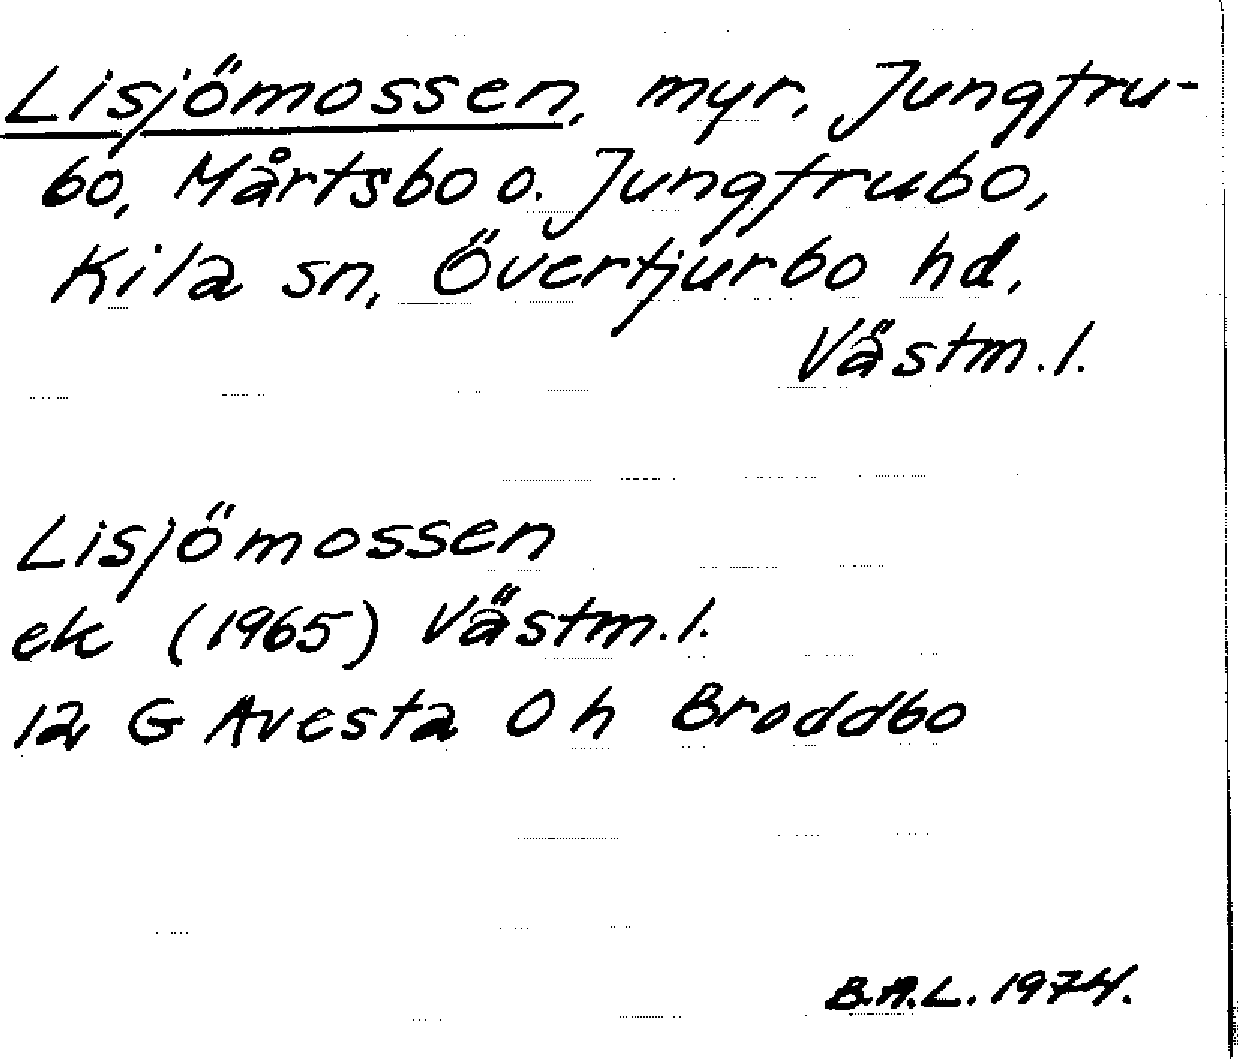 Lisjömossen, myr, Jungfru-
bo, Mårtsbo o. Jungfrubo,
Kila sn, Övertjurbo hd,
Västm.l.
Lisjömossen
ek (1965) Västm.l.
12 G Avesta 0 h Broddbo
B.A.L. 1974.